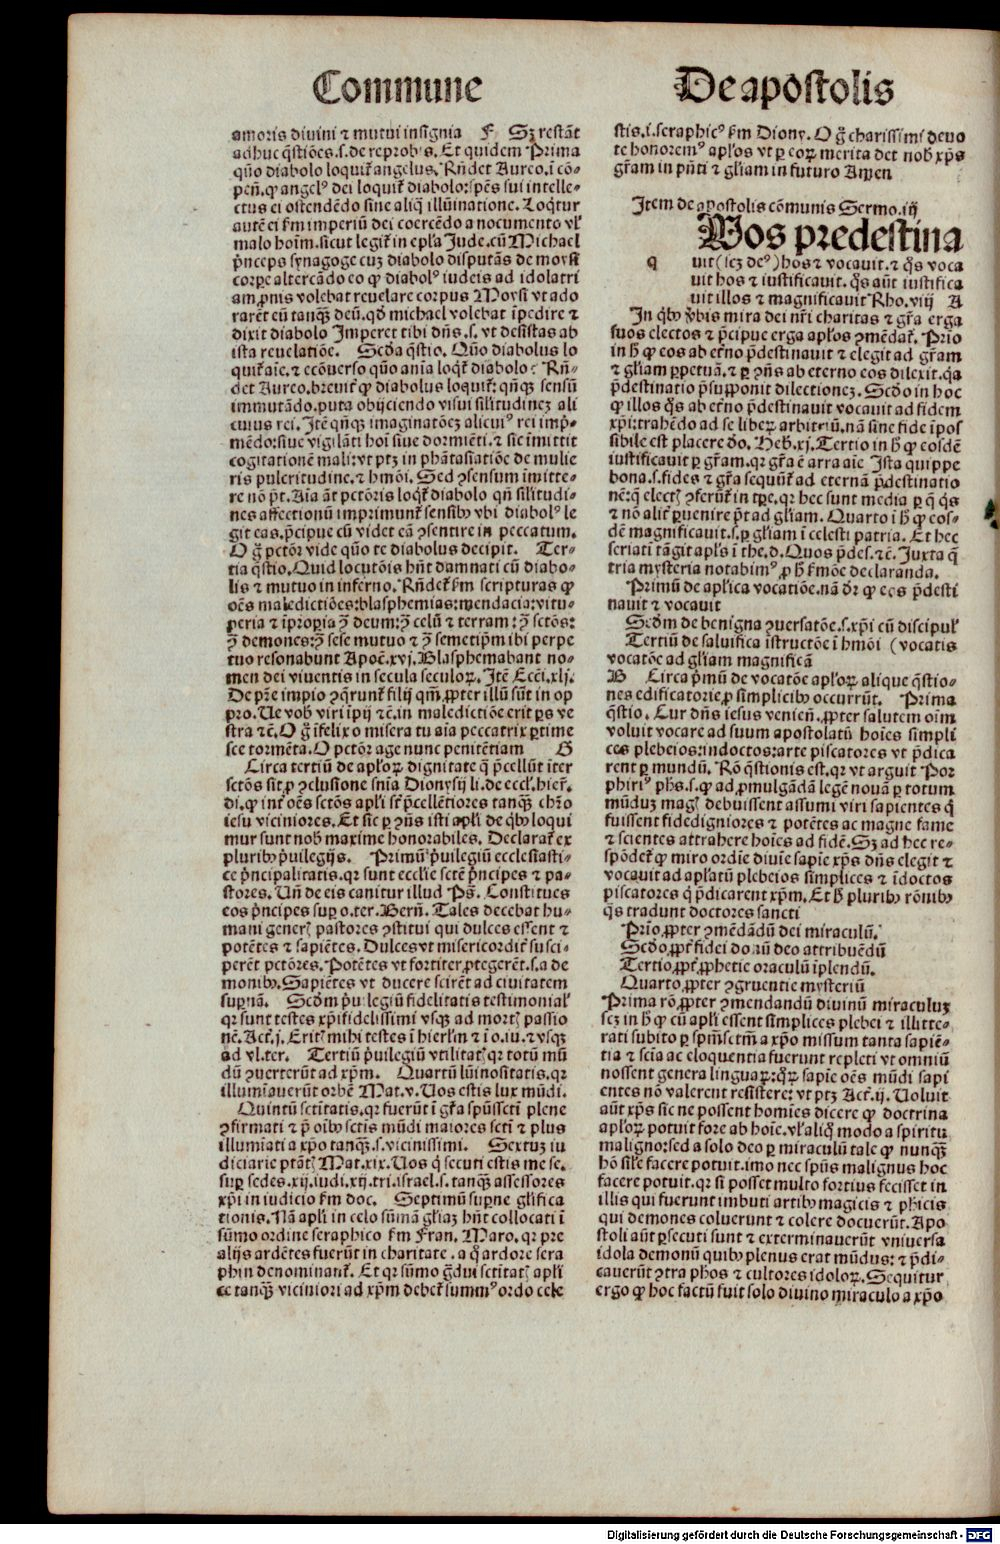 Commune
De apostolis
amoris divini ⁊ mutui insignia F Sʒ restāt
adhuc q̄stiōes.s.de reprobis. Et quidem Prima
quō diabolo loquit᷑ angelus. Rn̄det Aureo.ī cō-
pen̄. ꝙ angelꝰ dei loquit᷑ diabolo: sp̄es sui intelle-
ctus ei ostendēdo sine aliq̄ illūinatione. Loqr̄tur
autē ei ẜm imperiū dei coercēdo a nocumento vꝉ
malo hoīm.sicut legit᷑ in epl̄a Jude.cū Michael
p̄nceps synagoge cuʒ diabolo disputās de moysi
corꝑe altercādo eo ꝙ diabolꝰ iudeis ad idolatri
am ꝓnis volebat revelare corpus Moysi vt ado
rarēt eū tanꝙ̄ deū.qḋ michael volebat īpedire ⁊
dixit diabolo Imperet tibi dn̄s.s. vt desistas ab
ista revelatiōe. Scḋa q̄stio. Quō diabolus lo
quit᷑ aīe. ⁊ ecōverso quō anīa loqt᷑ diabolo: Rn̄-
det Aureo.brevit᷑ ꝙ diabolus loquit᷑: qn̄qʒ sensū
immutādo.puta obijciendo visui silitudineʒ ali
cuius rei. Itē qn̄qʒ imaginatōeʒ alicuiꝰ rei impͥ-
mēdo: sive vigilāti hoī sive dormiēti. ⁊ sic īmittit
cogitationē mali: vt ptʒ in phātasiatiōe de mulie
ris pulcritudine. ⁊ hmōi. Sed ꝯsensum īmitte-
re nō pōt. Aīa aūt pctōris loqt᷑ diabolo qn̄ silitudi-
nes affectionū imprimunt᷑ sensibꝰ vbi diabolꝰ le
git eas.p̄cipue cū videt eā ꝯsentire in peccatum.
O g̊ pctōr vide quō te diabolus decipit. Ter-
tia q̄stio. Quid locutōis hn̄t damnati cū diabo-
lis ⁊ mutuo in inferno. Rn̄det᷑ ẜm scripturas ꝙ
oēs maledictiōes: blasphemias: mendacia: vitu-
peria ⁊ īpropīa ꝯͣ deum: ꝯͣ celū ⁊ terram: ꝯͣ sctōs:
ꝯͣ demones: ꝯͣ sese mutuo ⁊ ꝯͣ semetip̄m ibi perpe
tuo resonabunt Apoc̄.xvj. Blasphemabant no-
men dei viventis in secula seculoꝝ. Itē Ecc̄i.xlj.
De pr̄e impio ꝯq̄runt᷑ filij qm̄ ꝓpter illū sūt in op
pro. Ue vob̄ viri īpij ⁊c̄.in maledictiōe erit ꝑs ve
stra ⁊c̄. O g̊ īfelix o misera tu aīa peccatrix ꝑtime
sce tormēta. O pctōr age nunc penitētiam G
Circa tertiū de apl̄oꝝ dignitate q̄ p̄cellūt īter
sctōs sit ꝓ ꝯclusione sn̄ia Dionysij li.de eccl̄.hier̄.
di. ꝙ int᷑ oēs sctōs apl̄i st̄ p̄cellētiores tanqʒ chr̄o
iesu viciniores. Et sic ꝑ ꝯn̄s isti apl̄i de qͥbꝰ loqui
mur sunt nob̄ maxime honorabiles. Declarat᷑ ex
pluribꝰ pͥuilegijs. Primū pͥuilegiū ecclesiasti-
ce pͥncipalitatis.qr sunt ecclīe scte pͥncipes ⁊ pa-
stores. Un̄ de eis canitur illud Ps̄. Constitues
eos pͥncipes suꝑ o.ter. Bern̄. Tales decebat hu-
mani generꝭ pastores ꝯstitui qui dulces essent ⁊
potētes ⁊ sapiētes. Dulces vt misericordit᷑ susci-
perēt pctōres. Potētes vt fortiter ꝓtegerēt.s.a de
monibꝰ. Sapiētes vt ducere scirēt ad civitatem
suꝑnā. Scḋm pͥuilegiū fidelitatis testimonialꝭ
qr sunt testes xp̄i fidelissimi vsqʒ ad mortꝭ passio
nē. Act̄.j. Eritꝭ mihi testes ī hierl̄m ⁊ ī o.iu. ⁊ vsqʒ
ad vl.ter. Tertiū pͥuilegiū vtilitatꝭ qr totū mū
dū ꝯverterūt ad xp̄m. Quartū lūinositatis.qr
illumīaverūt orbē Mat.v. Uos estis lux mūdi.
Quintū sctitatis.qr fuerūt ī gr̄a spūssctī plene
ꝯfirmati ⁊ pͥ oībꝰ sctis mūdi maiores sctī ⁊ plus
illumīati a xp̄o tanqʒ.s.vicinissimi. Sextuʒ iu
diciarie ptātꝭ Mat.xix. Uos q̄ secuti estis me se.
suꝑ sedes.xij.iudi.xij.tri.israel.s.tanqʒ assessores
xp̄i in iudicio ẜm doc. Septimū suꝑne gl̄ifica
tionis. Nā apl̄i in celo sūmā gl̄iaʒ hn̄t collocati ī
sūmo ordine seraphico ẜm Fran. Maro. qr pre
alijs ardētes fuerūt in charitate. a q̊ ardore sera
phin denominant᷑. Et qr sūmo g̊dui sctitatꝭ apl̄i
ce tanqʒ viciniori ad xp̄m debet᷑ summꝰ ordo cele
stis.i.seraphicꝰ ẜm Diony. O g̊ charissimi devo
te honoremꝰ apl̄os vt ꝑ eoꝝ merita det nob̄ xp̄s
gr̄am in pn̄ti ⁊ gl̄iam in futuro Amen
Item de apostolis cōmunis Sermo.iij
Quos predestina
q vit (scʒ deꝰ) hos ⁊ vocavit. ⁊ q̊s voca
vit hos ⁊ iustificavit. q̊s aūt iustifica
vit illos ⁊ magnificavit Rho.viij A
In qͥbꝰ vͥbis mira dei nr̄i charitas ⁊ gr̄a erga
suos electos ⁊ pͥcipue erga apl̄os ꝯmēdat᷑. Prīo
in h̊ ꝙ eos ab et᷑no p̄destinavit ⁊ elegit ad gr̄am
⁊ gl̄iam ꝑpetuā. ⁊ ꝑ ꝯn̄s ab eterno eos dilexit. qa
p̄destinatio p̄supponit dilectioneʒ. Scḋo in hoc
ꝙ illos q̊s ab et᷑no p̄destinavit vocavit ad fidem
xp̄i: trahēdo ad se liberꝫ arbitriū.nā sine fide īpos
sibile est placere deo. Heb̄.xj. Tertio in h̊ ꝙ eosdē
iustificavit ꝑ gr̄am.qr gr̄a ē arra aīe Ista quippe
bona.s.fides ⁊ gr̄a sequūt᷑ ad eternā p̄destinatio
nē: q̄ electꝭ ꝯferūt᷑ in tꝑe.qr hec sunt media ꝑ q̄ q̊s
⁊ nō alit᷑ ꝑvenire pōt ad gl̄iam. Quarto ī h̊ ꝙ eos-
dē magnificavit.s.ꝑ gl̄iam ī celesti patria. Et hec
seriati tāgit apl̄s ī the.d. Quos p̄des.⁊c̄. Juxta q̄
tria mysteria notabimꝰ ꝓ h̊ ẜmōe declaranda.
Primū de apl̄ica vocatiōe.nā dr̄ ꝙ eos p̄desti
navit ⁊ vocavit
Scḋm de benigna ꝯversatōe.s.xp̄i cū discipulꝭ
Tertiū de salvifica īstructōe ī hmōi (vocatis
vocatōe ad gl̄iam magnificā
B Circa pͥmū de vocatōe apl̄oꝝ alique q̄stio-
nes edificatorie ꝓ simplicibꝰ occurrūt. Prima
q̄stio. Cur dn̄s iesus venien̄. ꝓpter salutem oīm
voluit vocare ad suum apostolatū hoīes simpli
ces plebeios: indoctos: arte piscatores vt p̄dica
rent ꝑ mundū. Rō q̄stionis est.qr vt arguit Por
phiriꝰ ph̄s.s.ꝙ ad ꝓmulgādā legē novā ꝑ totum
mūduʒ magꝭ debuissent assumi viri sapientes q̄
fuissent fidedigniores ⁊ potētes ac magne fame
⁊ scientes attrahere hoīes ad fidē. Sʒ ad hec re-
spōdet᷑ ꝙ miro ordīe divīe sapīe xp̄s dn̄s elegit ⁊
vocavit ad apl̄atū plebeios simplices ⁊ īdoctos
piscatores q̄ p̄dicarent xp̄m. Et h̊ pluribꝰ rōnibꝰ
q̄s tradunt doctores sancti
Prīo. ꝓpter ꝯmēdādū dei miraculū.
Scḋo. ꝓpt᷑ fidei donū deo attribuēdū
Tertio. ꝓpt᷑ ꝓphetie oraculū īplendū.
Quarto. ꝓpter ꝯgruentie mysteriū
Prima rō. ꝓpter ꝯmendandū divinū miraculuʒ
scʒ in h̊ ꝙ cū apl̄i essent simplices plebei ⁊ illitte-
rati subito ꝑ spm̄sctm̄ a xp̄o missum tanta sapiē-
tia ⁊ scīa ac eloquentia fuerunt repleti vt omniū
nossent genera linguaꝝ: qͦꝝ sapīe oēs mūdi sapi
entes nō valerent resistere: vt ptʒ Act̄.ij. Uoluit
aūt xp̄s sic ne possent homīes dicere ꝙ doctrina
apl̄oꝝ potuit fore ab hoīe.vꝉ aliq̊ modo a spiritu
maligno: sed a solo deo ꝑ miraculū tale ꝙ nunqʒ
hō sil̄e facere potuit.imo nec spūs malignus hoc
facere potuit.qr si posset multo fortius fecisset in
illis qui fuerunt imbuti artibꝰ magicis ⁊ ph̄icis
qui demones coluerunt ⁊ colere docuerūt. Apo
stoli aūt ꝑsecuti sunt ⁊ exterminaverūt vniversa
idola demonū quibꝰ plenus erat mūdus: ⁊ p̄di-
caverūt ꝯtra ph̄os ⁊ cultores idoloꝝ. Sequitur
ergo ꝙ hoc factū fuit solo divino miraculo a xp̄o
Digitalisierung gefördert durch die Deutsche Forschungsgemeinschaft - DFG